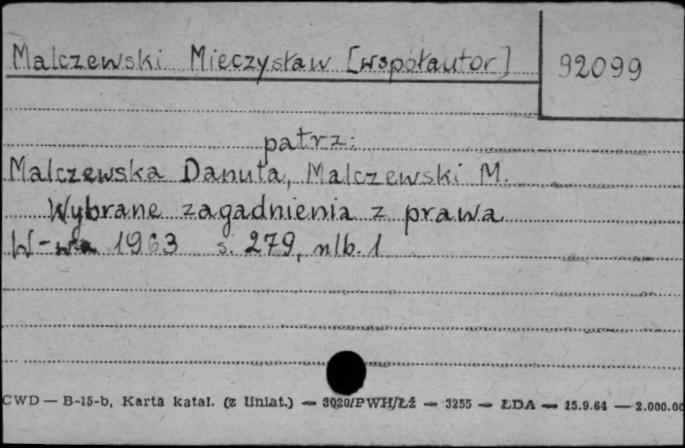 Malczewski Mieczysław [współautor] 92099
patrz:
Malczewska Danuta, Malczewski M.
Wybrane zagadnienia z prawa
W-wa 1963 s. 279, nlb. 1
CWD — B-15-b, Karta katal. (z liniat.) — 3020/PWH/Łź — 3255 — ŁDA — 15.9.61 — 2.000.00